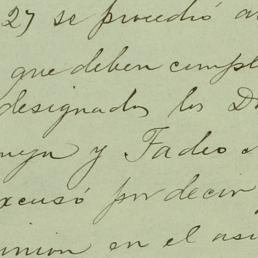 27 se procedió a
que deben compl
designados los D
y Fadeo
xcusó por decir
union en el asu